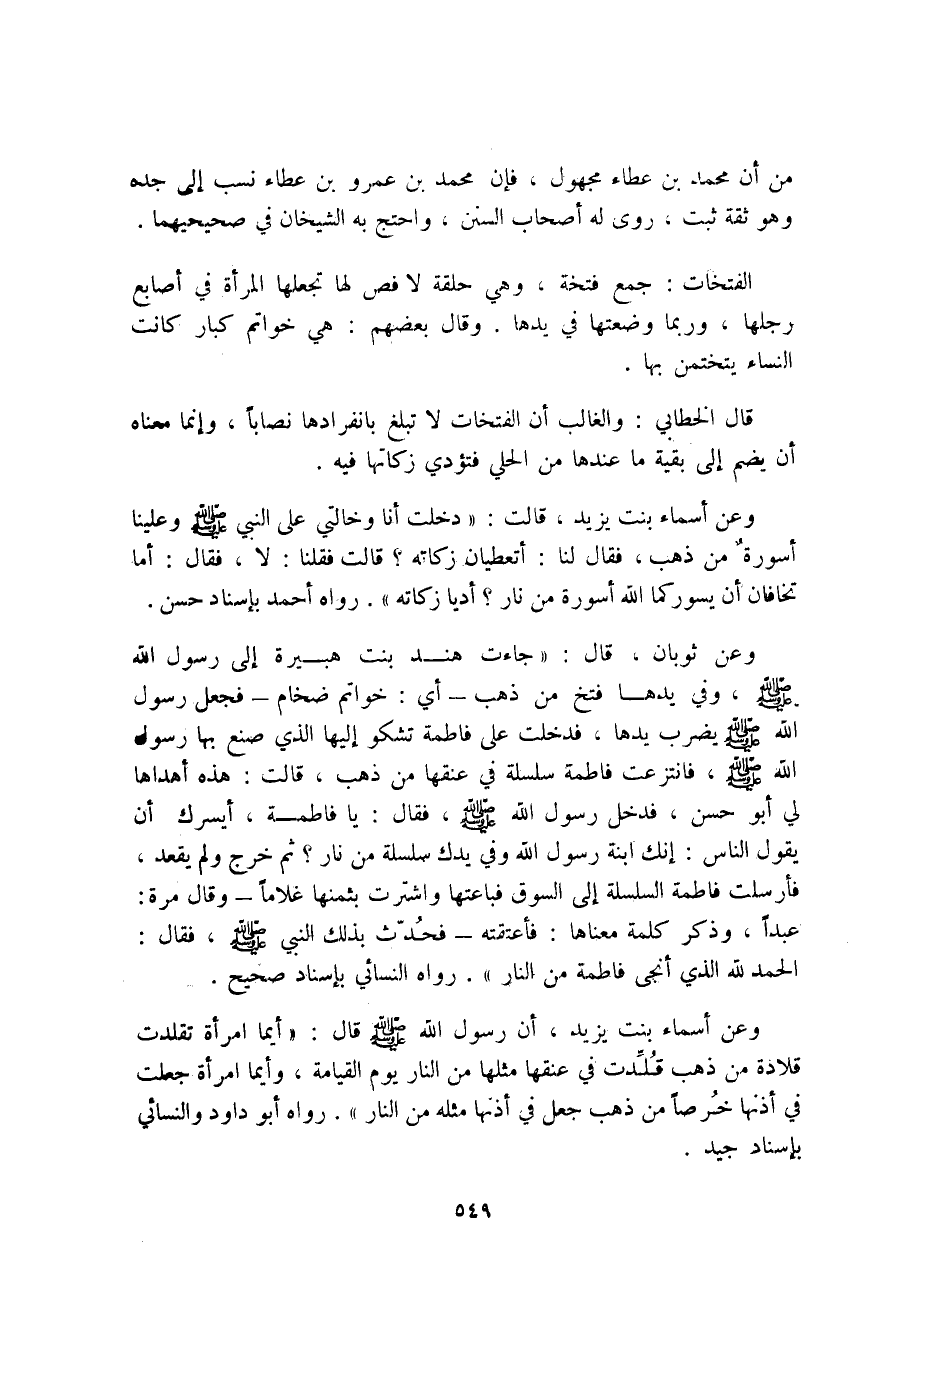 من أن محمد بن عطاء مجهول ، فإن محمد بن عمرو بن عطاء نسب إلى جده
وهو ثقة ثبت ، روى له أصحاب السنن ، واحتج به الشيخان في صحيحيهما .
الفتخات : جمع فتخة ، وهي حلقة لا فص لها تجعلها المرأة في أصابع
رجلها ، وربما وضعتها في يدها . وقال بعضهم : هي خواتم كبار كانت
النساء يتختمن بها .
قال الخطابي : والغالب أن الفتخات لا تبلغ بانفرادها نصاباً ، وإنما معناه
أن يضم إلى بقية ما عندها من الحلي فتؤدي زكاتها فيه .
وعن أسماء بنت يزيد ، قالت : « دخلت أنا وخالتي على النبي ﷺ وعلينا
أسورةٌ من ذهب ، فقال لنا : أتعطيان زكاته ؟ قالت فقلنا : لا ، فقال : أما
تخافان أن يسوركما الله أسورة من نار ؟ أديا زكاته » . رواه أحمد بإسناد حسن .
وعن ثوبان ، قال : « جاءت هنـــد بنت هبـــيرة إلى رسول الله
ﷺ ، وفي يدهـــا فتخ من ذهب – أي : خواتم ضخام – فجعل رسول
الله ﷺ يضرب يدها ، فدخلت على فاطمة تشكو إليها الذي صنع بها رسول
الله ﷺ ، فانتزعت فاطمة سلسلة في عنقها من ذهب ، قالت : هذه أهداها
لي أبو حسن ، فدخل رسول الله ﷺ ، فقال : يا فاطمـــة ، أيسرك أن
يقول الناس : إنك ابنة رسول الله وفي يدك سلسلة من نار ؟ ثم خرج ولم يقعد ،
فأرسلت فاطمة السلسلة إلى السوق فباعتها واشترت بثمنها غلاماً – وقال مرة :
عبداً ، وذكر كلمة معناها : فأعتقته – فحُدّث بذلك النبي ﷺ ، فقال :
الحمد لله الذي أنجى فاطمة من النار » . رواه النسائي بإسناد صحيح .
وعن أسماء بنت يزيد ، أن رسول الله ﷺ قال : « أيما امرأة تقلدت
قلادة من ذهب قُلِّدت في عنقها مثلها من النار يوم القيامة ، وأيما امرأة جعلت
في أذنها خُرصاً من ذهب جعل في أذنها مثله من النار » . رواه أبو داود والنسائي
بإسناد جيد .
٥٤٩